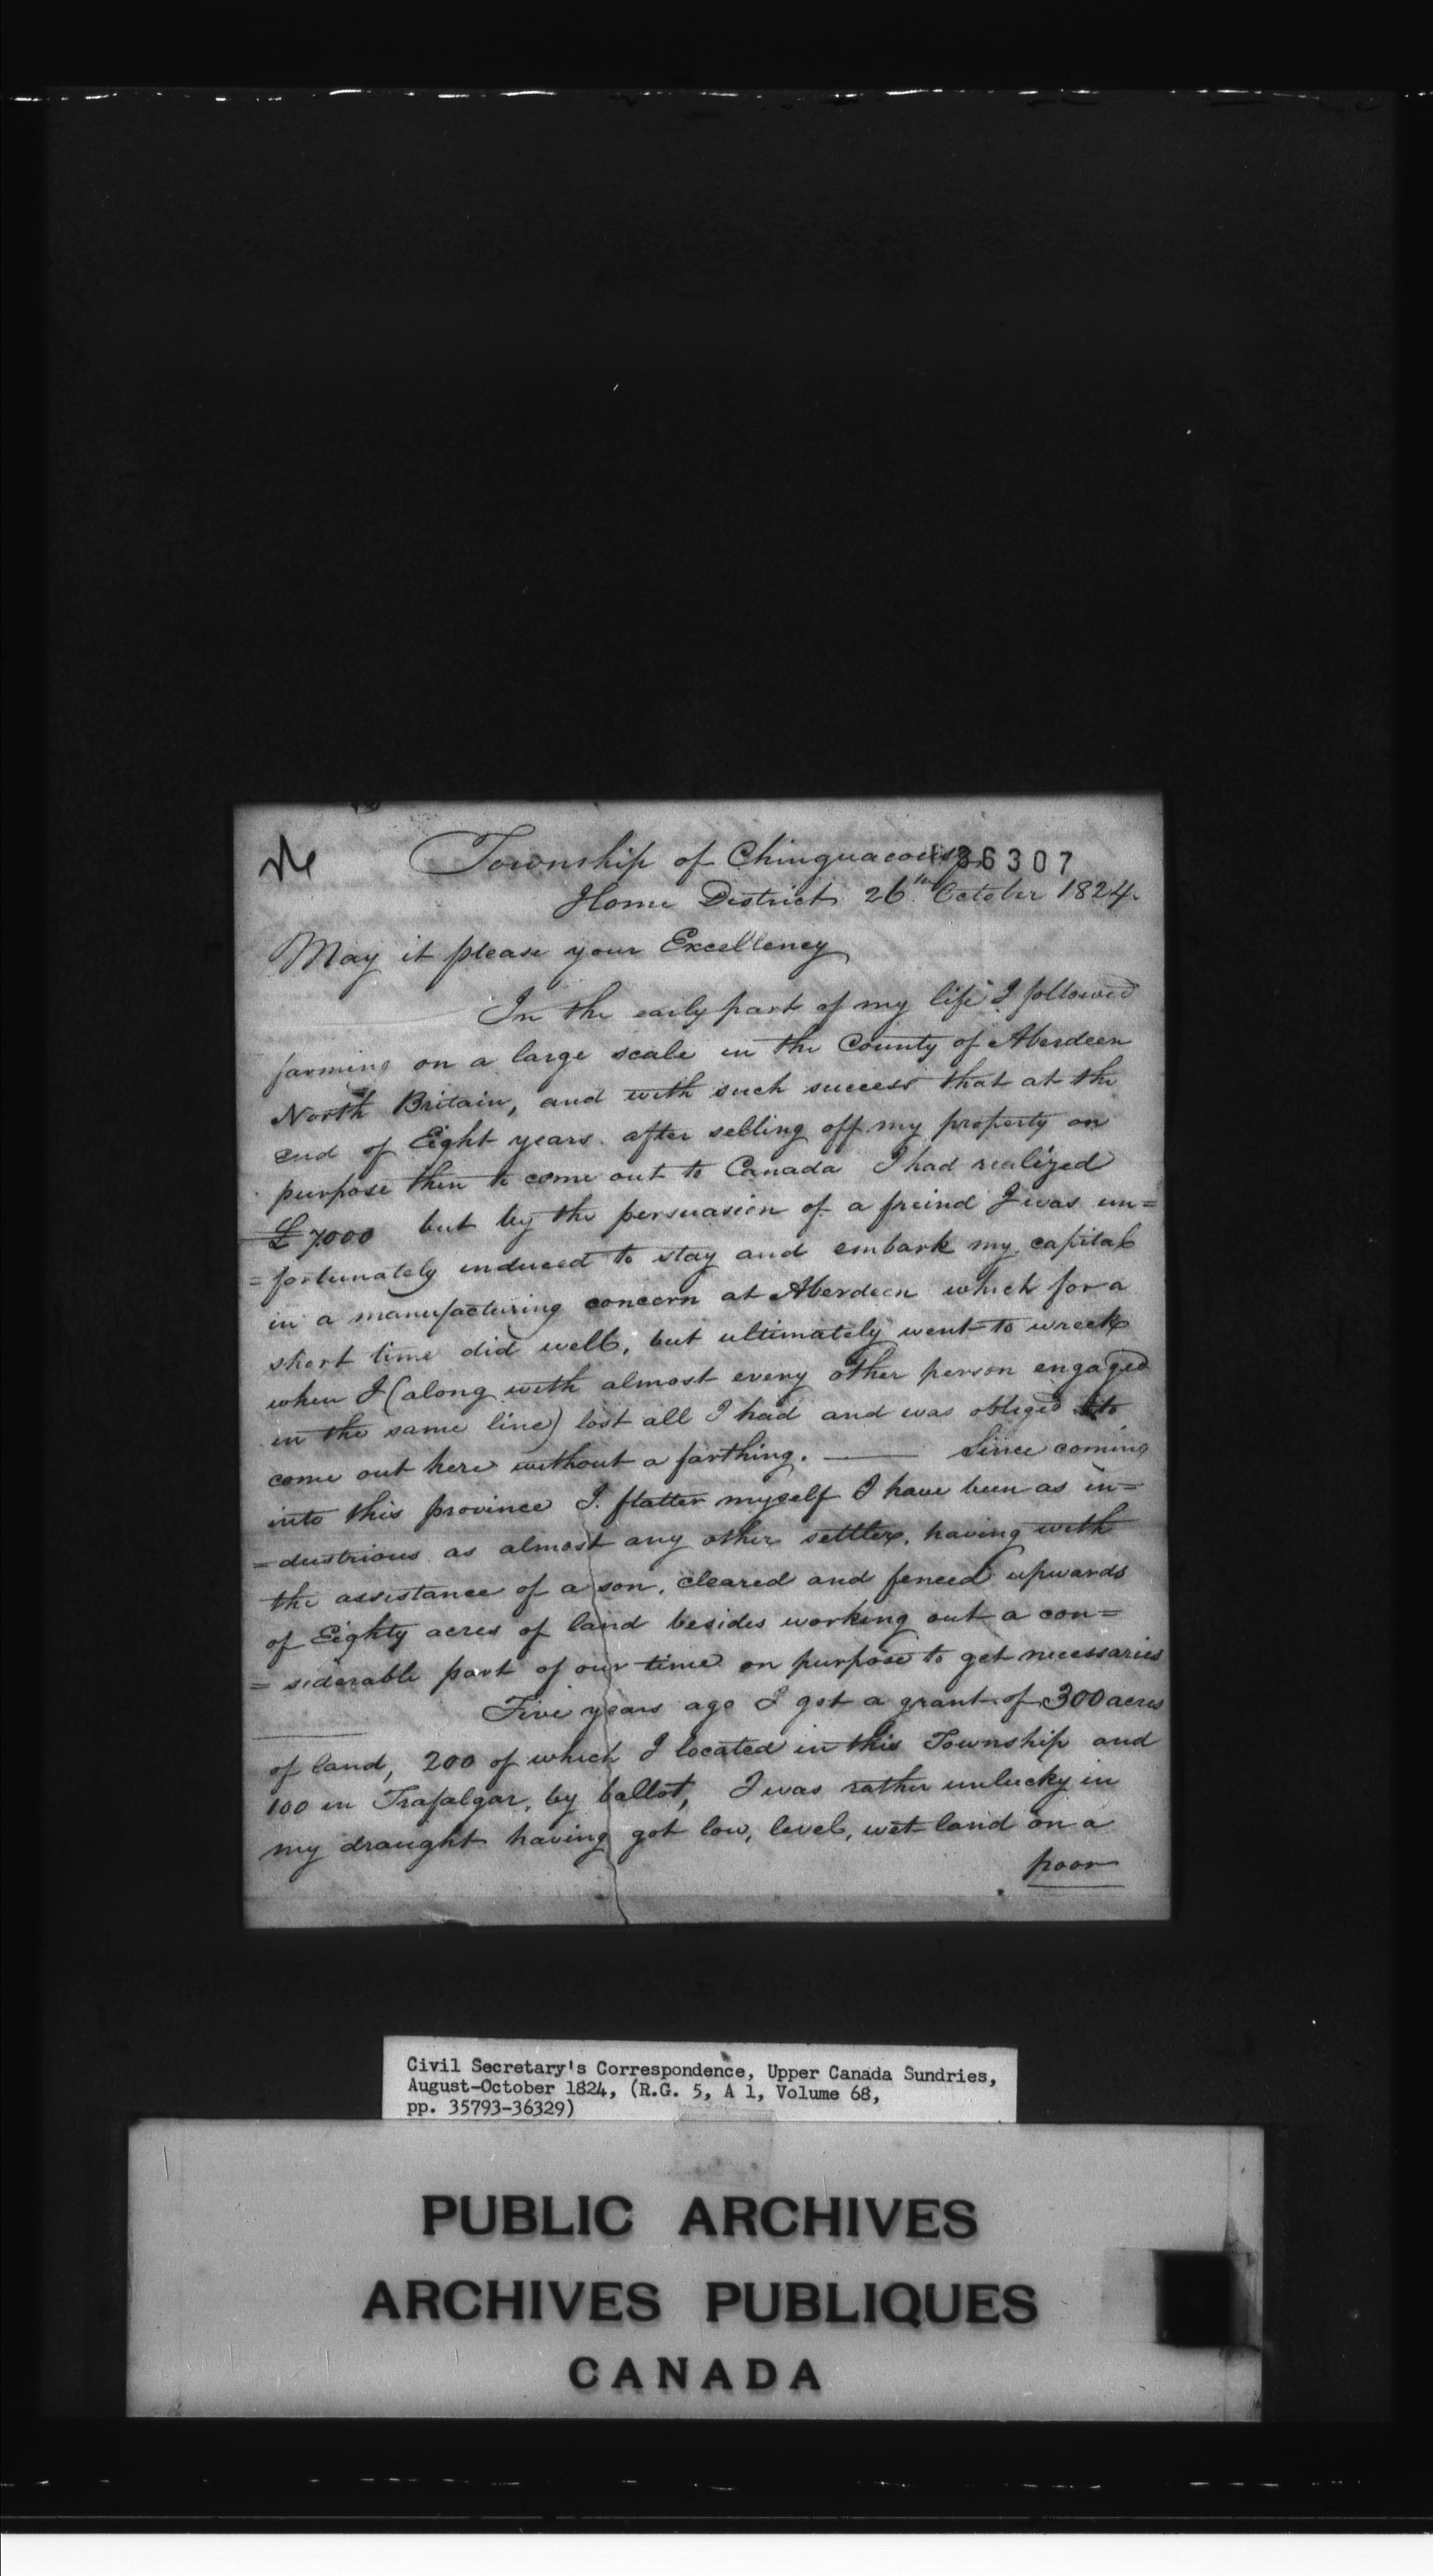 Township of Chinguacousy
36307
Home District 26th October 1824.
May it please your Excellency
In the early part of my life I followed
farming on a large scale in the County of Aberdeen
North Britain, and with such success that at the
end of Eight years after selling off my property on
purpose then to come out to Canada I had realized
£7000 but by the persuasion of a freind I was un=
=fortunately induced to stay and embark my capital
in a manufacturing concern at Aberdeen which for a
short time did well, but ultimately went to wreck
when I (along with almost every other person engaged
in the same line) lost all I had and was obliged to
come out here without a farthing. —— Since coming
into this province I flatter myself I have been as in=
=dustrious as almost any other settler, having with
the assistance of a son, cleared and fenced upwards
of Eighty acres of land besides working out a con=
=siderable part of our time on purpose to get necessaries
Five years ago I got a grant of 300 acres
of land, 200 of which I located in this Township and
100 in Trafalgar, by ballot, I was rather unlucky in
my draught having got low, level, wet land on a
poor
Civil Secretary's Correspondence, Upper Canada Sundries,
August-October 1824, (R.G. 5, A 1, Volume 68,
pp. 35793-36329)
PUBLIC ARCHIVES
ARCHIVES PUBLIQUES
CANADA